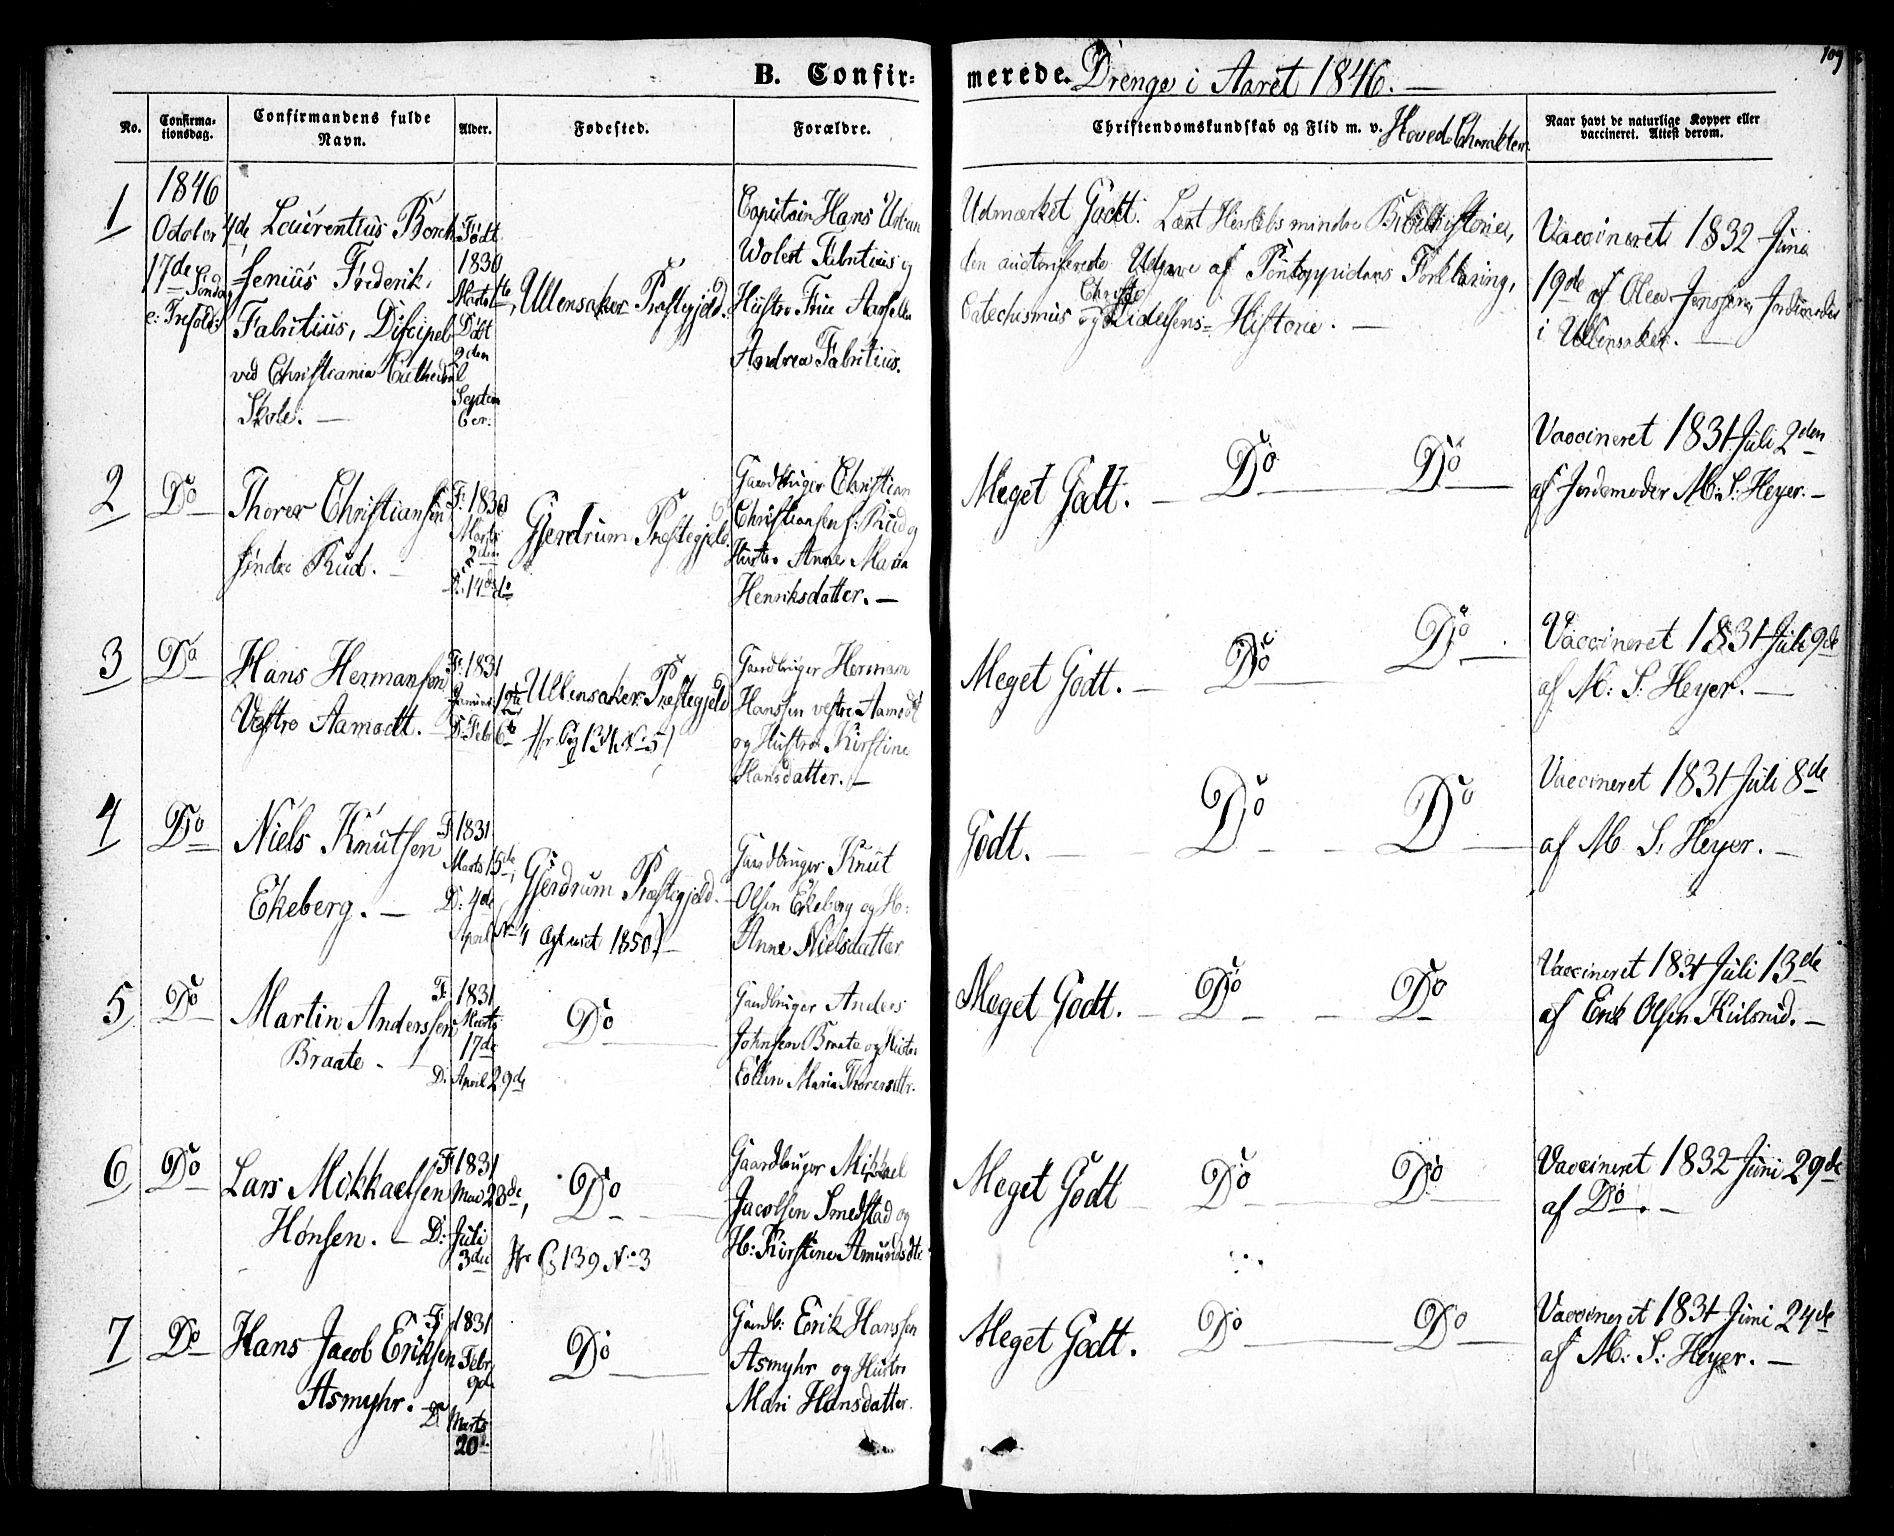 109
B. Confir- merede. Drenge i Aaret 1846. —
No. Confirma-tionsdag. Confirmandens fulde Navn. Alder. Fødested. Forældre. Christendomskundskab og Flid m. v. Hoved-Charakter. Naar havt de naturlige Kopper eller vaccineret. Attest derom.
1
1846
October 4de,
17de Søndag
e: Trefold:
Laurentius Borch-
senius Frederik
Fabritius, Discipel
ved Christiania Cathedral
Skole. —
Født
1830
Marts
Døbt
9den
Septem
ber.
Ullensaker Præstegjeld.
Capitain Hans
Wolert Fabritius og
Hustro Frue
Andrea Fabritius.
Udmærket Godt. Læst Herslebs mindre Bibelhistorie,
den auctoriserede Udgave af Pontoppidans Forklaring,
Catechismus og Christi Lidelses-Historie. —
Vaccineret 1832 Juni
19de af Olea Jenssen, Jordmoder
i Ullensaker. —
2
Do
Thorer Christiansen
søndre Rud. —
F: 1830
Marts
2den
D: 14de do
Gjerdrum Præstegjeld.
Gaardbruger Christian
Christiansen s: Rud og
Hustro Anne Maria
Henriksdatter. —
Meget Godt. — Do — Do —
Vaccineret 1831 Juli 2den
af Jordemoder M: S: Heyer. —
3
Do
Hans Hermansen
Vestre Aamodt. —
F: 1831
Januar
D: Febr 6te
Ullensaker Præstegjeld
Gaardbruger Herman
Hanssen vestre Aamodt
og Hustro Kirstine
Hansdatter. —
Meget Godt. — Do — Do —
Vaccineret 1831 Juli 9de
af M: S: Heyer. —
4
Do
Niels Knutsen
Ekeberg. —
F 1831
Marts 15de,
D: 4de
April
Gjerdrum Præstegjeld.
(No 4 1850) —
Gaardbruger Knut
Olsen Ekeberg og H:
Anne Nielsdatter
Godt. — Do — — Do —
Vaccineret 1831 Juli 8de
af M. S: Heyer. —
5
Do
Martin Anderssen
Braate. —
F: 1831
Marts
17de
D: April 29de
Do
Gaardbruger Anders
Johnsen Braate og Hustro
Maria
Meget Godt. — Do — — Do —
Vaccineret 1831 Juli 13de
af Erik Olsen Kulsrud. —
6
Do
Lars Mikkaelsen
Hønsen. —
F 1831
Mai 23de,
D: Juli
3die
Do
139 No 3
Gaardbruger Mikkael
Jacobsen Smedstad og
H: Kirstine Amundsdtr
Meget Godt Do — Do —
Vaccineret 1832 Juni 29de
af Do. —
7
Do
Hans Jacob Eriksen
Asmyhr. —
F: 1831
Febr
9de
D: Marts
20de
Do
Gaardb: Erik Hanssen
Asmyhr og Hustro
Mari Hansdatter.
Meget Godt. Do — Do —
Vaccineret 1831 Juni 24de
af M: S: Heyer. —